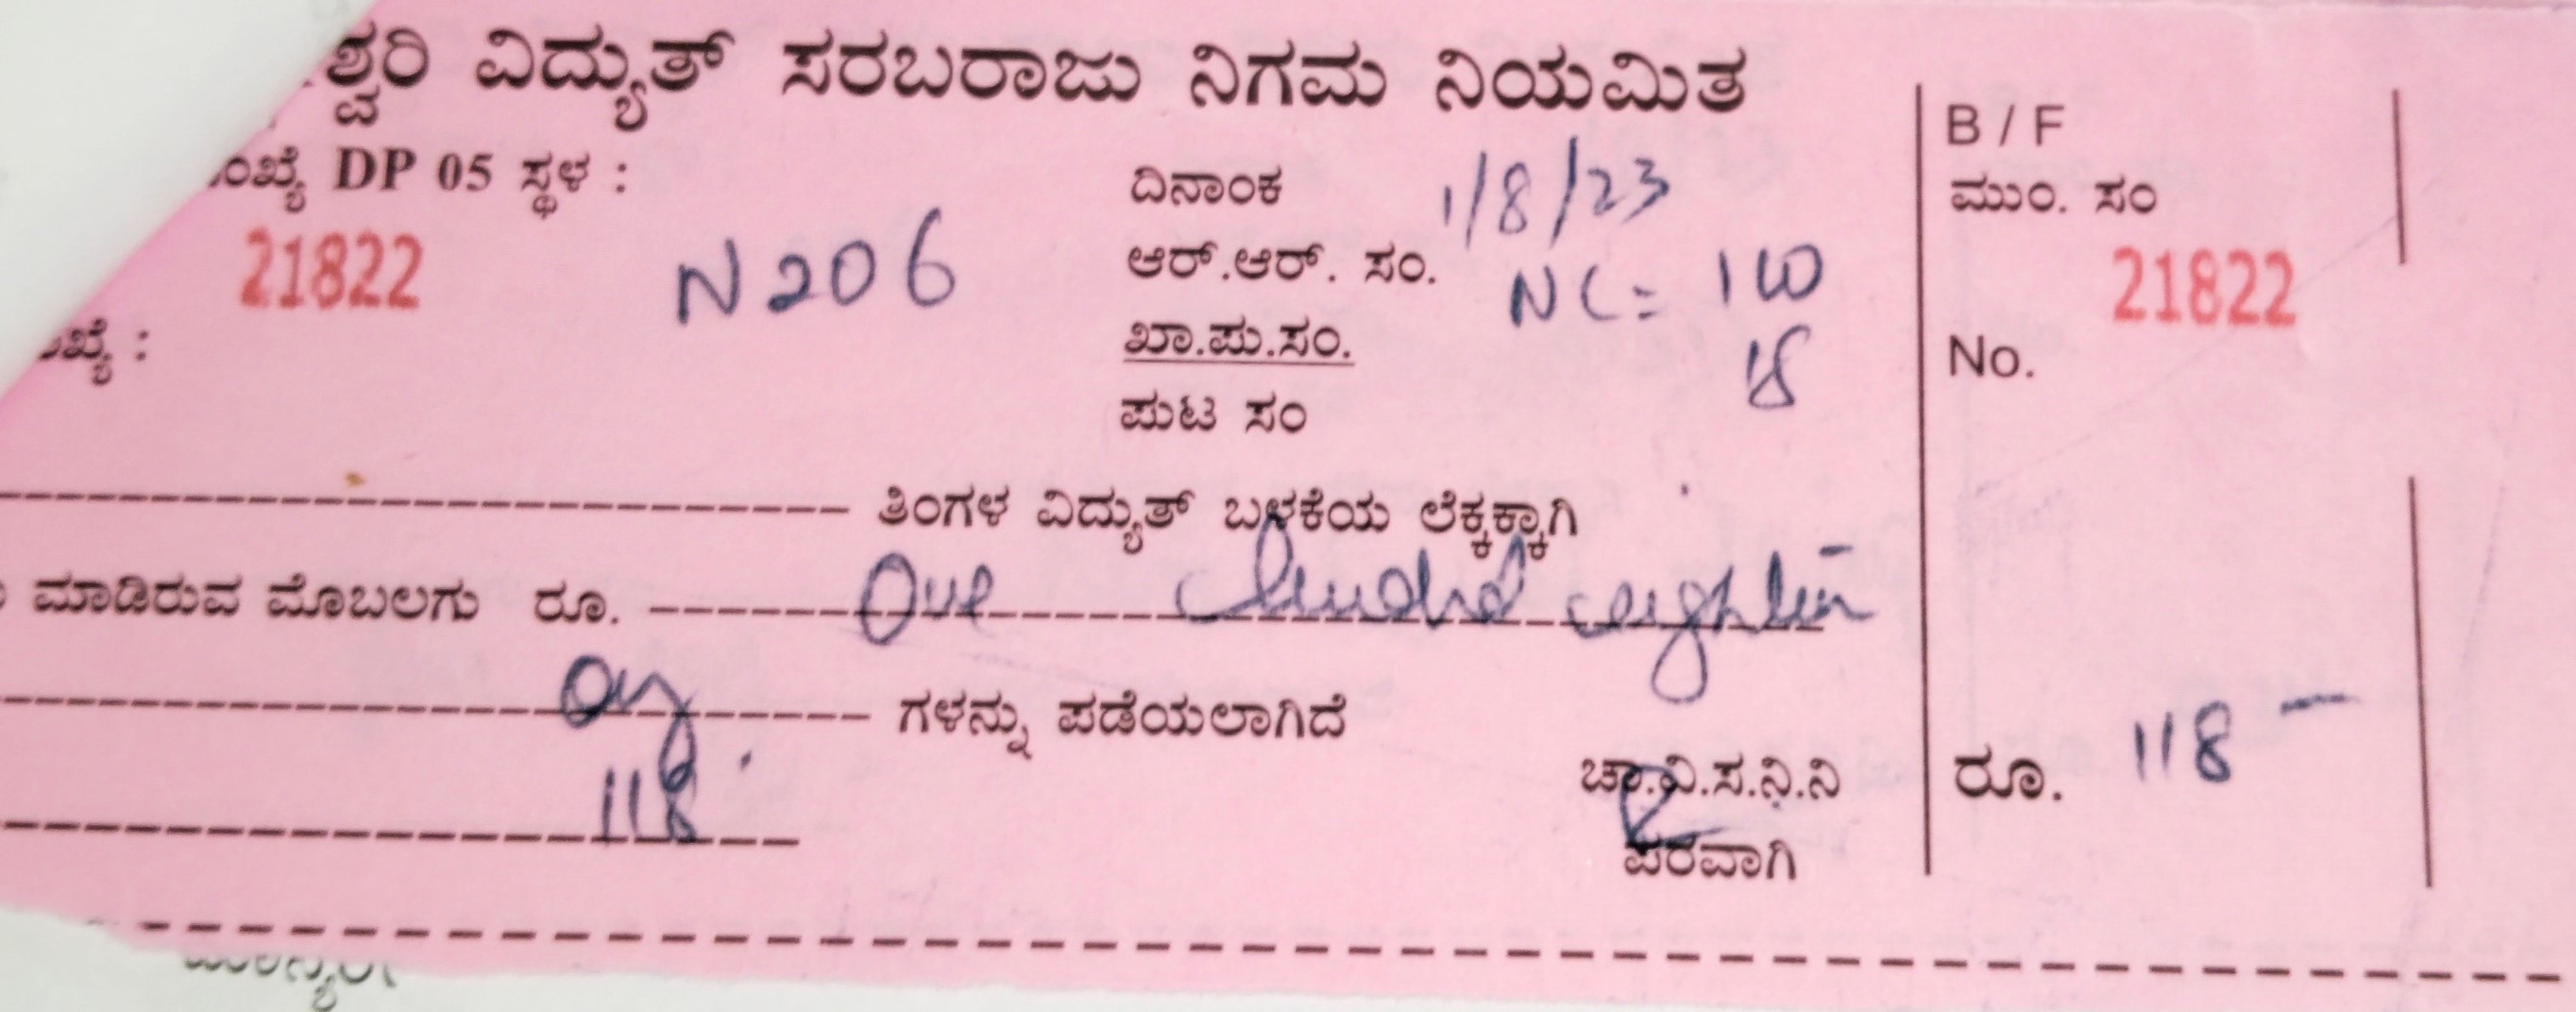 ಶ್ವರಿ ವಿದ್ಯುತ್ ಸರಬರಾಜು ನಿಗಮ ನಿಯಮಿತ
ಂಖ್ಯೆ DP 05 ಸ್ಥಳ :
21822
N206
ಖ್ಯೆ :
ದಿನಾಂಕ 1/8/23
ಆರ್.ಆರ್. ಸಂ. NC = 100
ಖಾ.ಪು.ಸಂ. 18
ಪುಟ ಸಂ
B / F
ಮುಂ. ಸಂ
21822
No.
ತಿಂಗಳ ವಿದ್ಯುತ್ ಬಳಕೆಯ ಲೆಕ್ಕಕ್ಕಾಗಿ
ಮಾಡಿರುವ ಮೊಬಲಗು ರೂ. One hundred eighteen
only ಗಳನ್ನು ಪಡೆಯಲಾಗಿದೆ
118
ಚಾ.ವಿ.ಸ.ನಿ.ನಿ
ಪರವಾಗಿ
ರೂ. 118 -